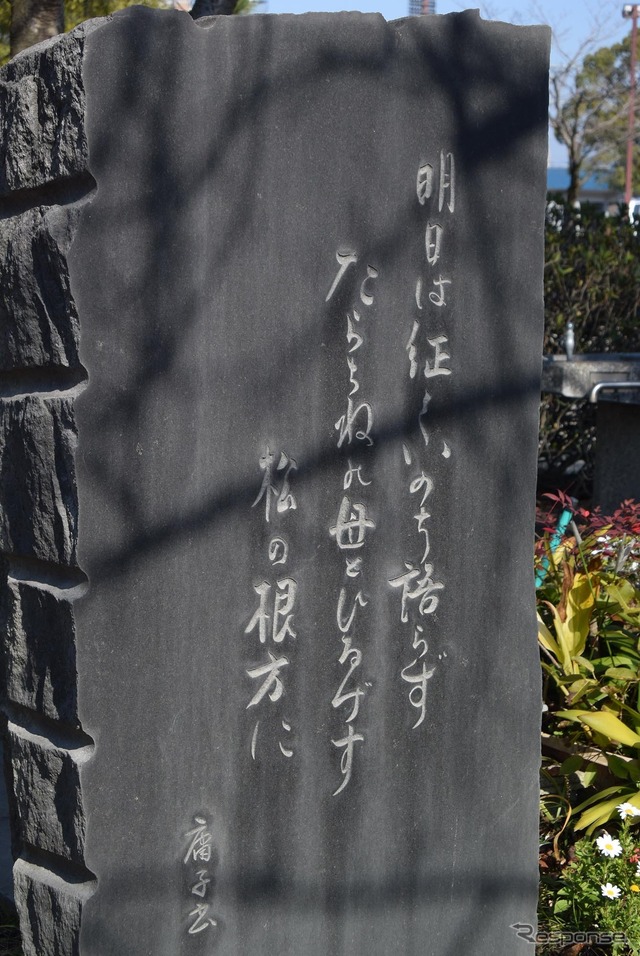 明日は征くいのち語らず
たらちねの母とひるげす
松の根方に
Response.